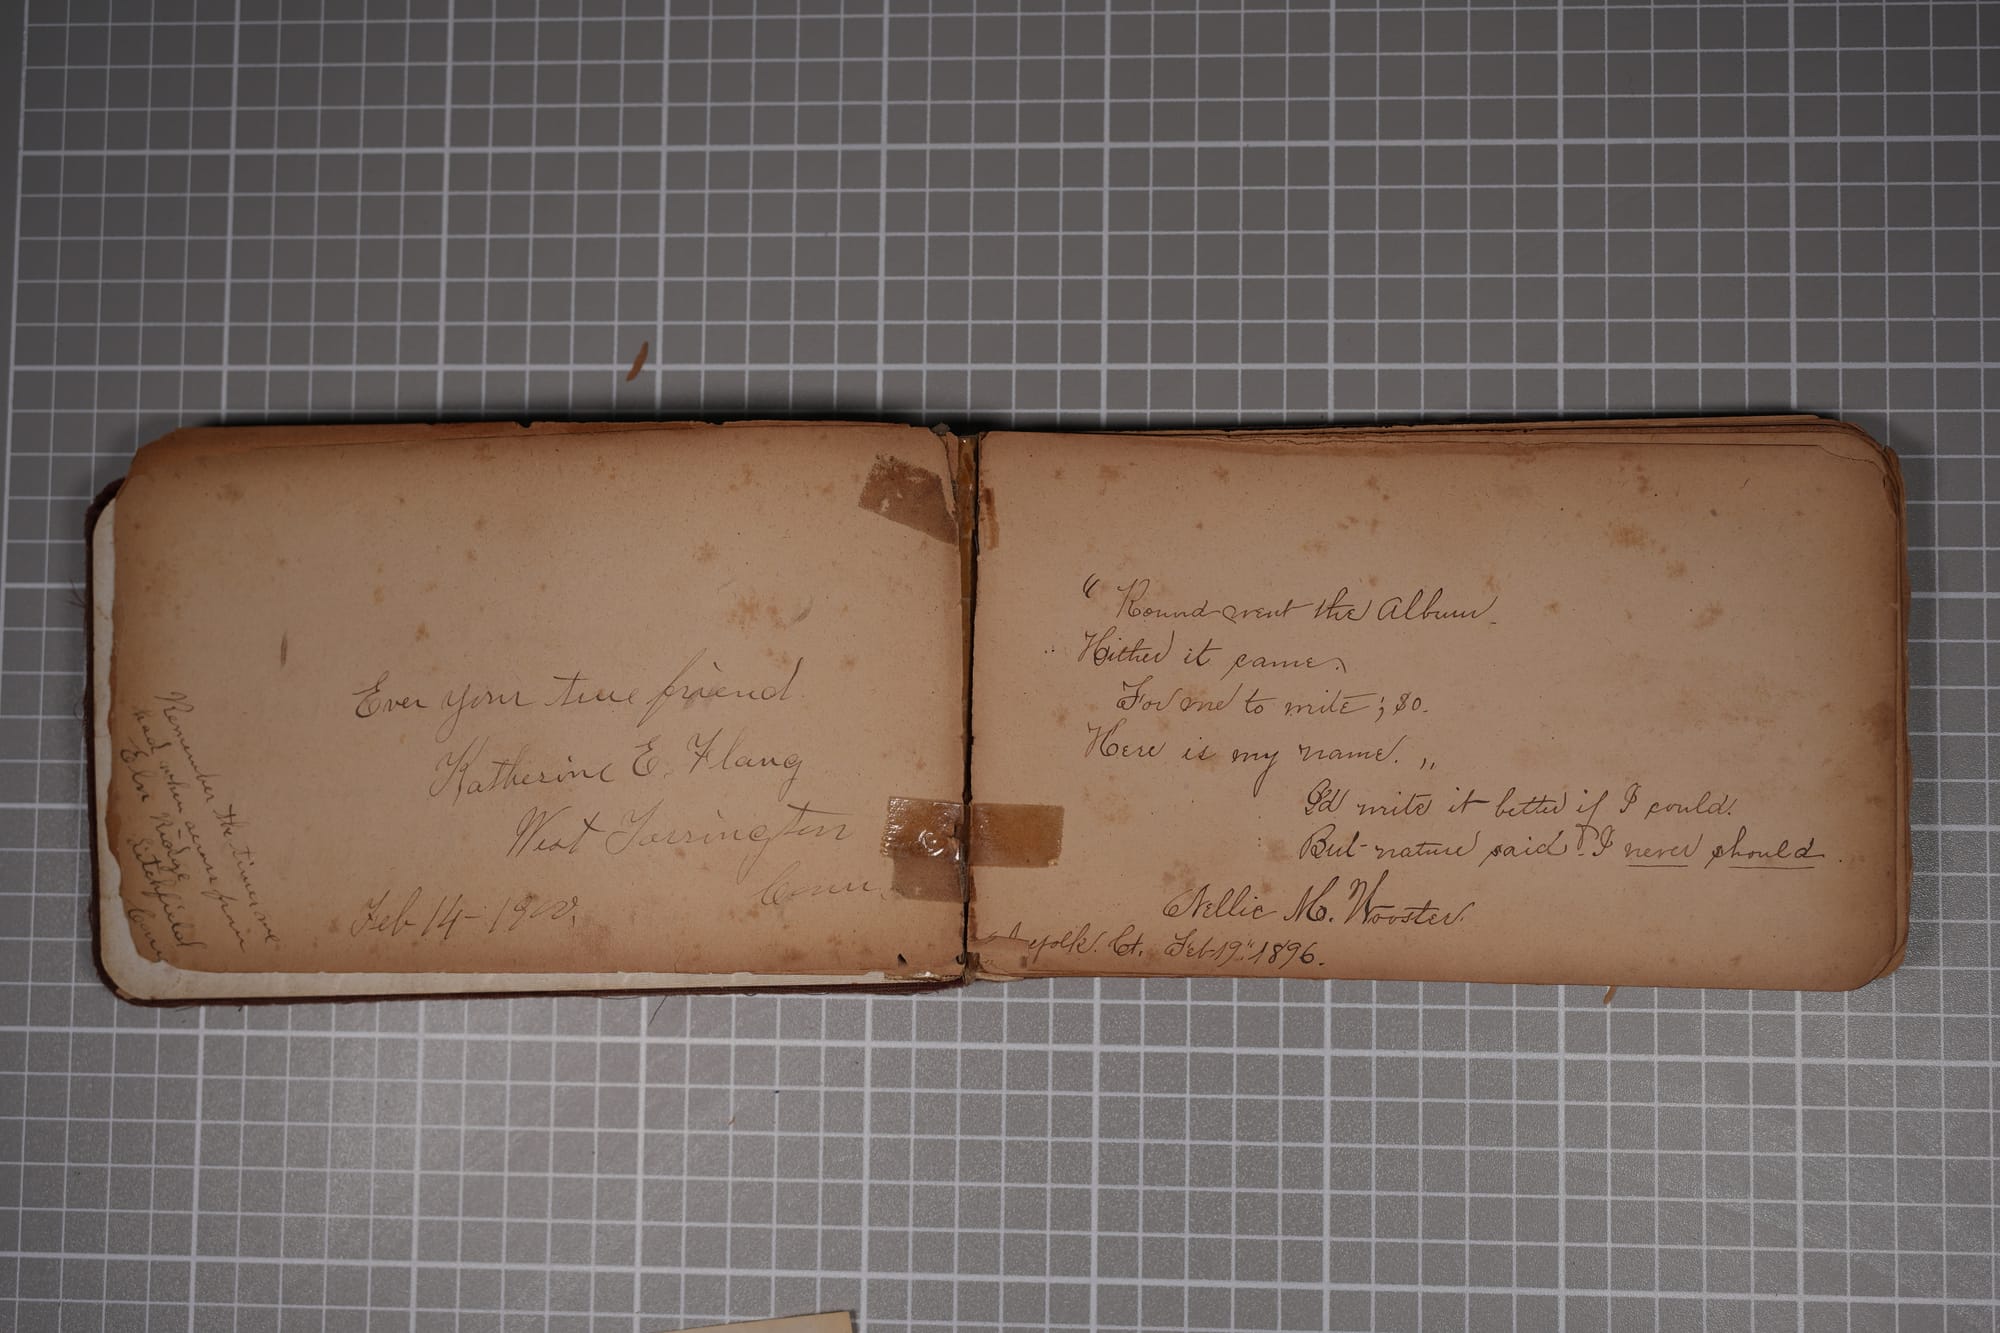 Ever your true friend
Katherine E. Flang
West Torrington
Conn.
Feb 14 - 1900.
Remember the times we
had when across from
Elm Ridge
Litchfield
Conn
" Round went the Album
Hither it came.
For me to write ; So.
Here is my name. "
I'd write it better if I could.
But nature said I never should.
Nellie M. Wooster.
folk. Ct. Feb. 19" 1896.